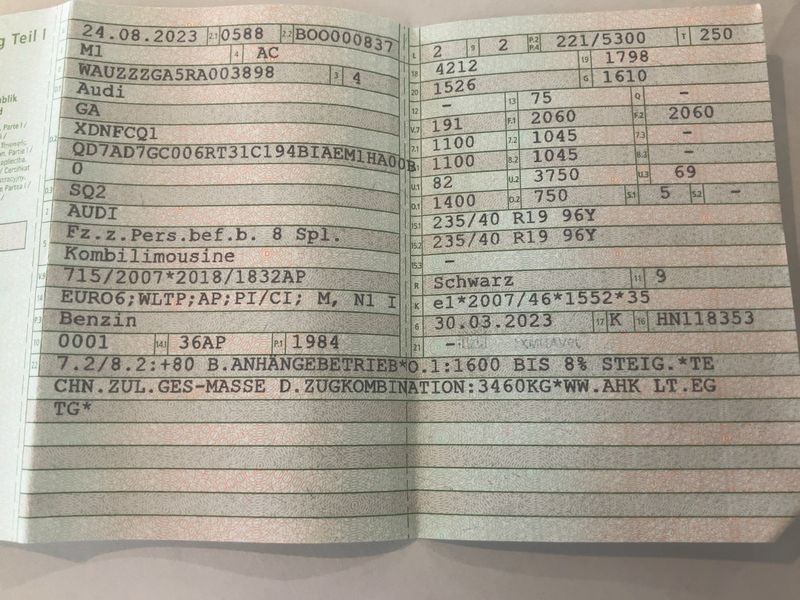 g Teil I
24.08.2023 2.1 0588 2.2 BOO000837
M1 4 AC
WAUZZZGA5RA003898 3 4
Audi
GA
XDNFCQ1
QD7AD7GC006RT31C194BIAEM1HA00B
0
SQ2
AUDI
Fz.z.Pers.bef.b. 8 Spl.
Kombilimousine
715/2007*2018/1832AP
EURO6;WLTP;AP;PI/CI; M, N1 I
Benzin
10 0001 14.1 36AP P.1 1984
L 2 9 2 P.2 P.4 221/5300 T 250
18 4212 19 1798
20 1526 G 1610
12 - 13 75 Q -
V.7 191 F.1 2060 F.2 2060
7.1 1100 7.2 1045 7.3 -
8.1 1100 8.2 1045 8.3 -
U.1 82 U.2 3750 U.3 69
O.1 1400 O.2 750 S.1 5 S.2 -
15.1 235/40 R19 96Y
15.2 235/40 R19 96Y
15.3 -
R Schwarz 11 9
K e1*2007/46*1552*35
6 30.03.2023 17 K 16 HN118353
21 -
22 7.2/8.2:+80 B.ANHÄNGEBETRIEB*O.1:1600 BIS 8% STEIG.*TE
CHN.ZUL.GES-MASSE D.ZUGKOMBINATION:3460KG*WW.AHK LT.EG
TG*